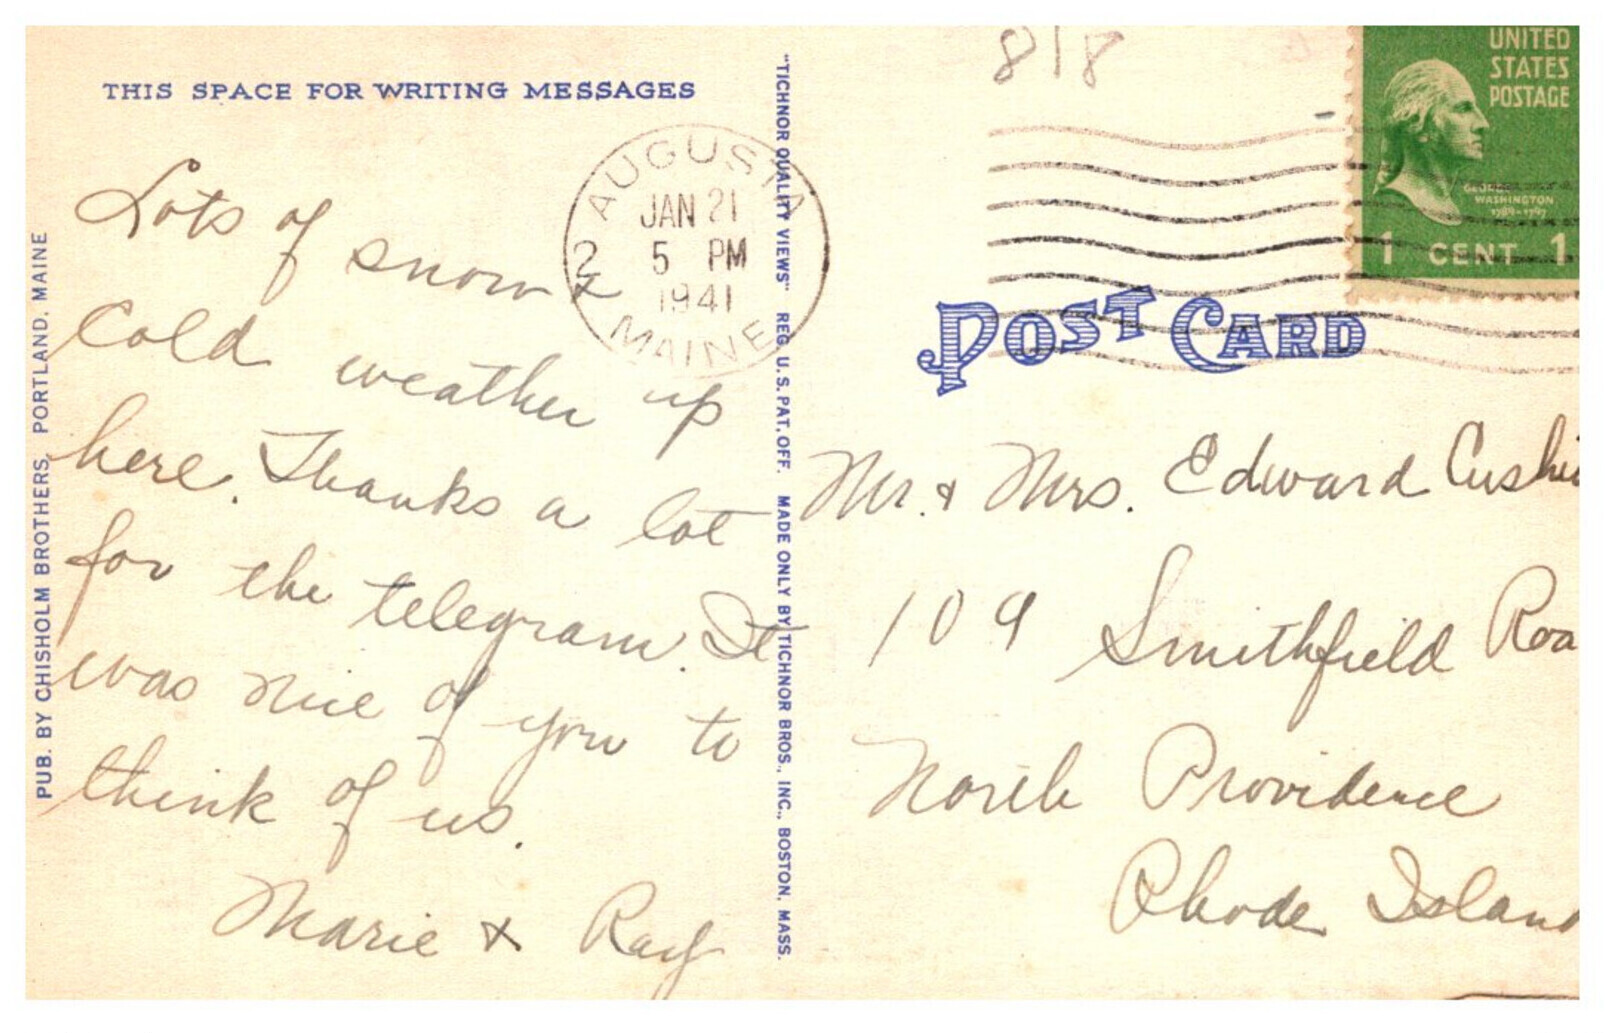 THIS SPACE FOR WRITING MESSAGES
Lots of snow &
cold weather up
here. Thanks a lot
for the telegram. It
was nice of you to
think of us.
Marie & Ray
PUB. BY CHISHOLM BROTHERS, PORTLAND, MAINE
AUGUSTA
JAN 21
2 5 PM
1941
MAINE
"TICHNOR QUALITY VIEWS" REG. U. S. PAT. OFF. MADE ONLY BY TICHNOR BROS., INC., BOSTON, MASS.
818
UNITED
STATES
POSTAGE
GEORGE
WASHINGTON
1789-1797
1 CENT 1
POST CARD
Mr. & Mrs. Edward Cushi
109 Smithfield Roa
North Providence
Rhode Island